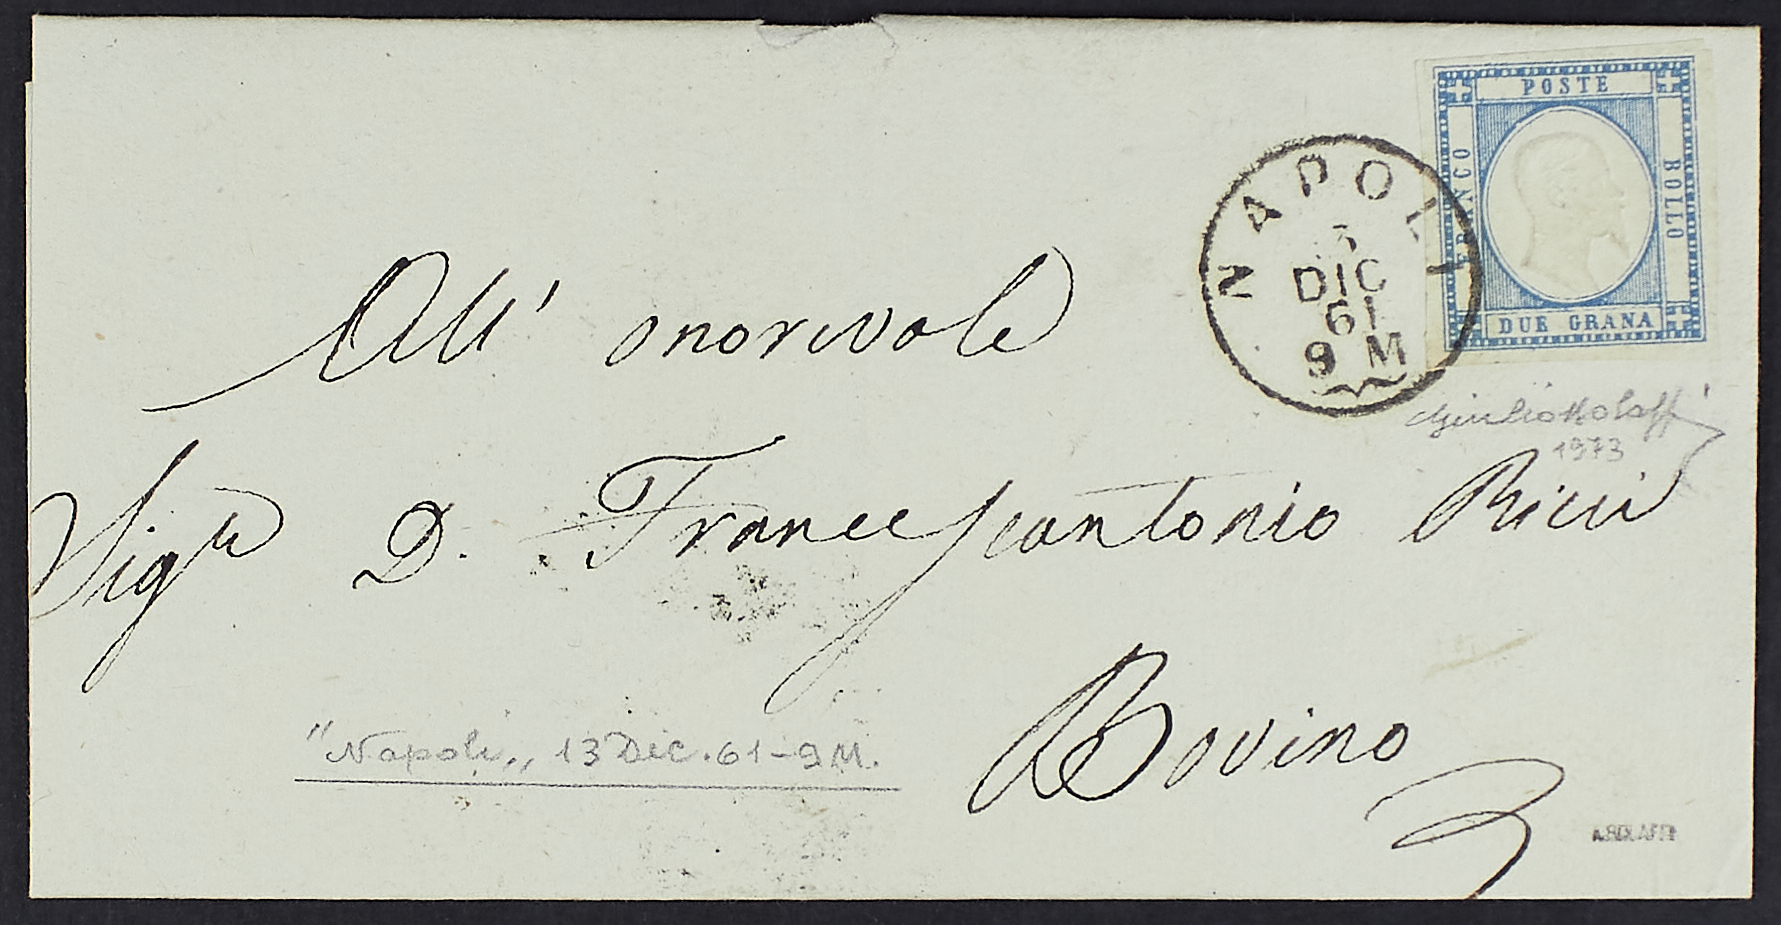 POSTE
FRANCO
BOLLO
DUE GRANA
NAPOLI
3
DIC
61
9 M
All' onorevole
Sigr D. Francescantonio Ricci
Bovino
"Napoli" 13 Dic. 61 - 9 M.
Giulio Bolaffi
1973
A.BOLAFFI